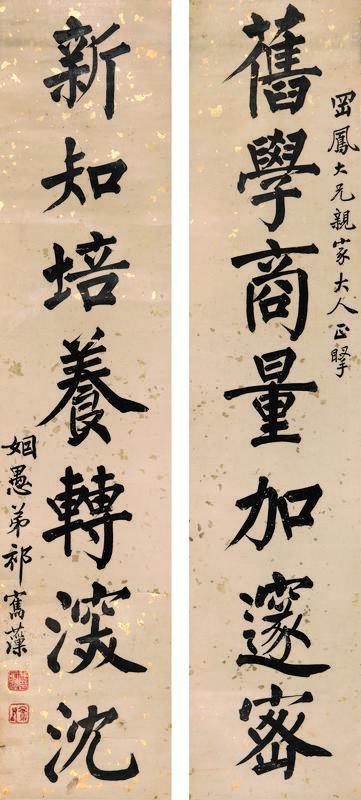 岡鳳大兄親家大人正
舊學商量加邃密
新知培養轉深沈
姻愚弟祁寯藻